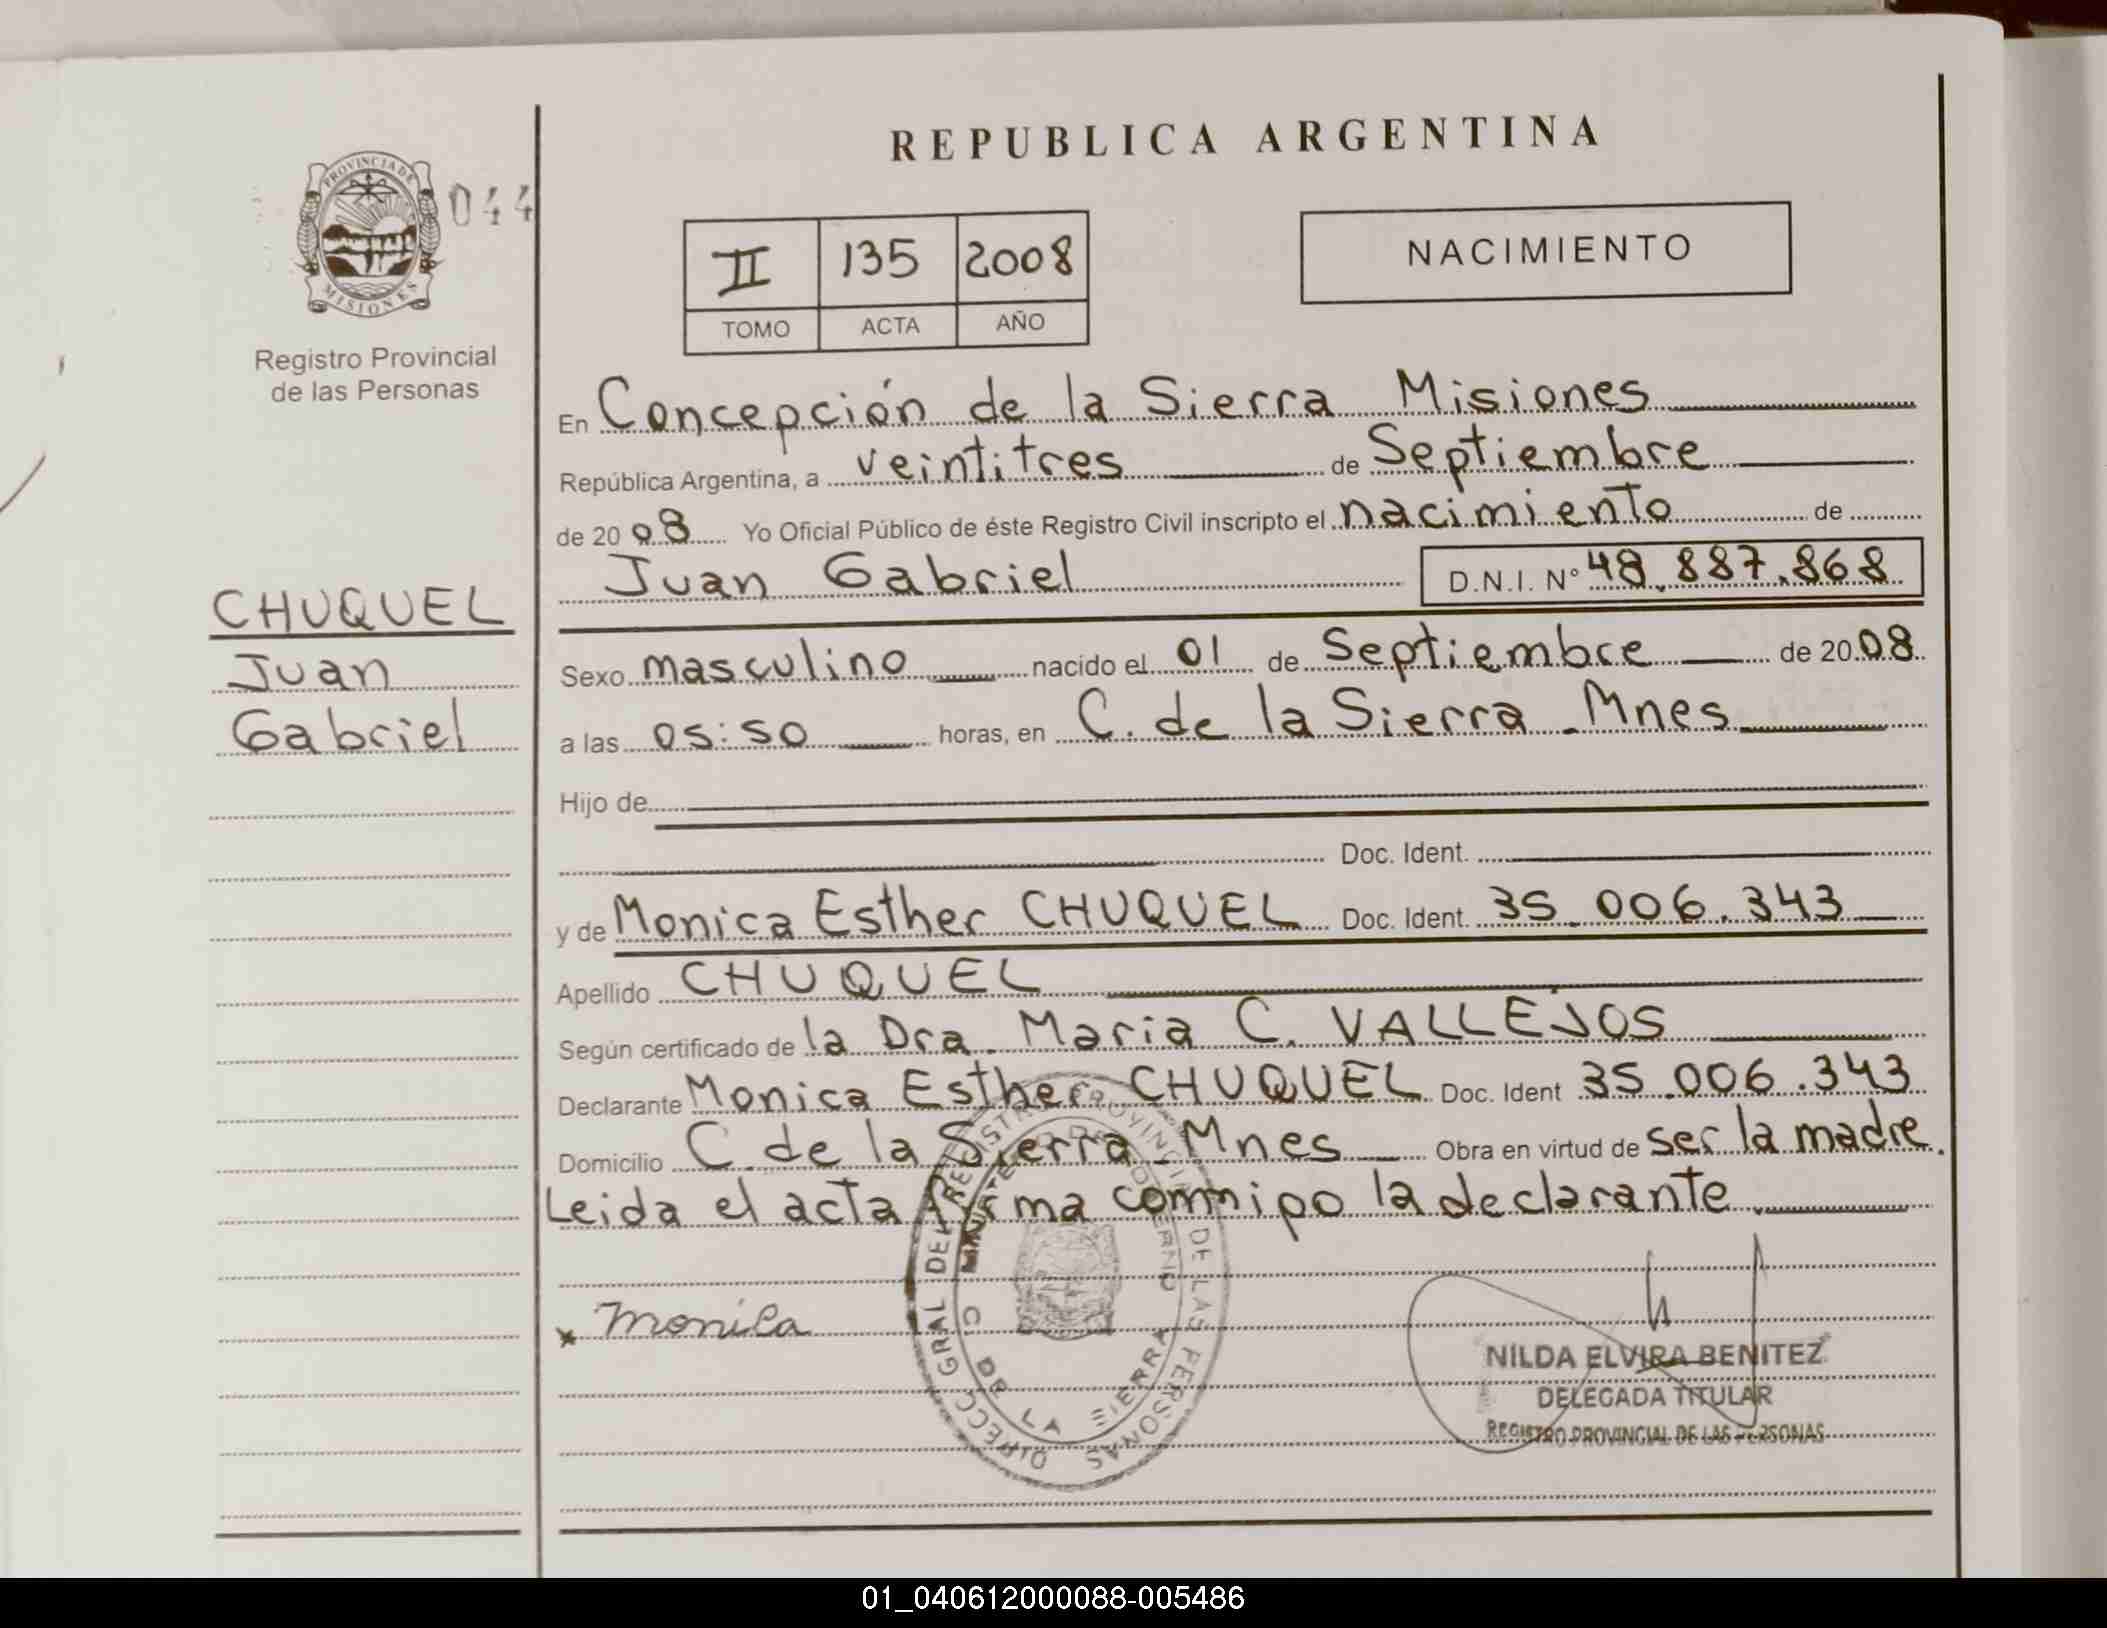 REPUBLICA ARGENTINA
PROVINCIA DE MISIONES
044
Registro Provincial
de las Personas
II 135 2008
TOMO ACTA AÑO
NACIMIENTO
CHUQUEL
Juan
Gabriel
En Concepción de la Sierra Misiones
República Argentina, a veintitres de Septiembre
de 2008 Yo Oficial Público de éste Registro Civil inscripto el nacimiento de
Juan Gabriel D.N.I. N° 48.887.868
Sexo masculino nacido el 01 de Septiembre de 2008
a las 05:50 horas, en C. de la Sierra - Mnes
Hijo de
Doc. Ident.
y de Monica Esther CHUQUEL Doc. Ident. 35.006.343
Apellido CHUQUEL
Según certificado de la Dra. Maria C. VALLEJOS
Declarante Monica Esther CHUQUEL Doc. Ident 35.006.343
Domicilio C. de la Sierra - Mnes Obra en virtud de ser la madre.
Leida el acta firma comnipo la declarante
x Monica
DIRECC GRAL DEL REGISTRO PROVINCIAL DE LAS PERSONAS
MINISTERIO DE GOBIERNO
C. DE LA SIERRA
NILDA ELVIRA BENITEZ
DELEGADA TITULAR
REGISTRO PROVINCIAL DE LAS PERSONAS
01_040612000088-005486